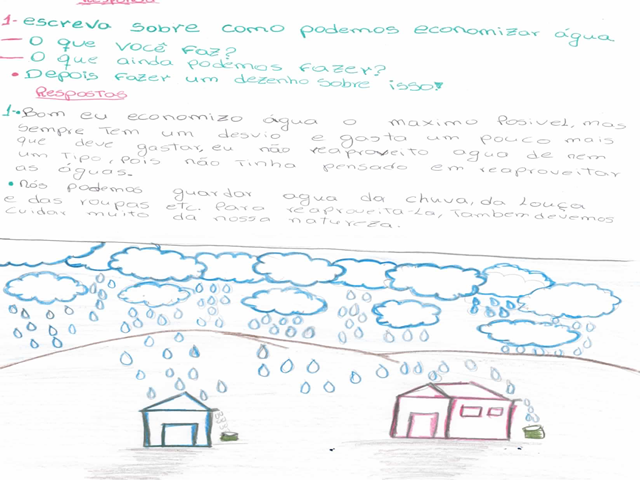 Respostas
1- escreva sobre como podemos economizar água
— O que você faz?
— O que ainda podemos fazer?
• Depois fazer um dezenho sobre isso!
Respostas
1-• Bom eu economizo água o maximo posivel, mas
sempre tem um desvio e gasta um pouco mais
que deve gastar, eu não reaproveito agua de nem
um tipo, pois não tinha pensado em reaproveitar
as águas.
• Nós podemos guardar agua da chuva, da louça
e das roupas etc. Para reaproveita-la, tambem devemos
cuidar muito da nossa natureza.